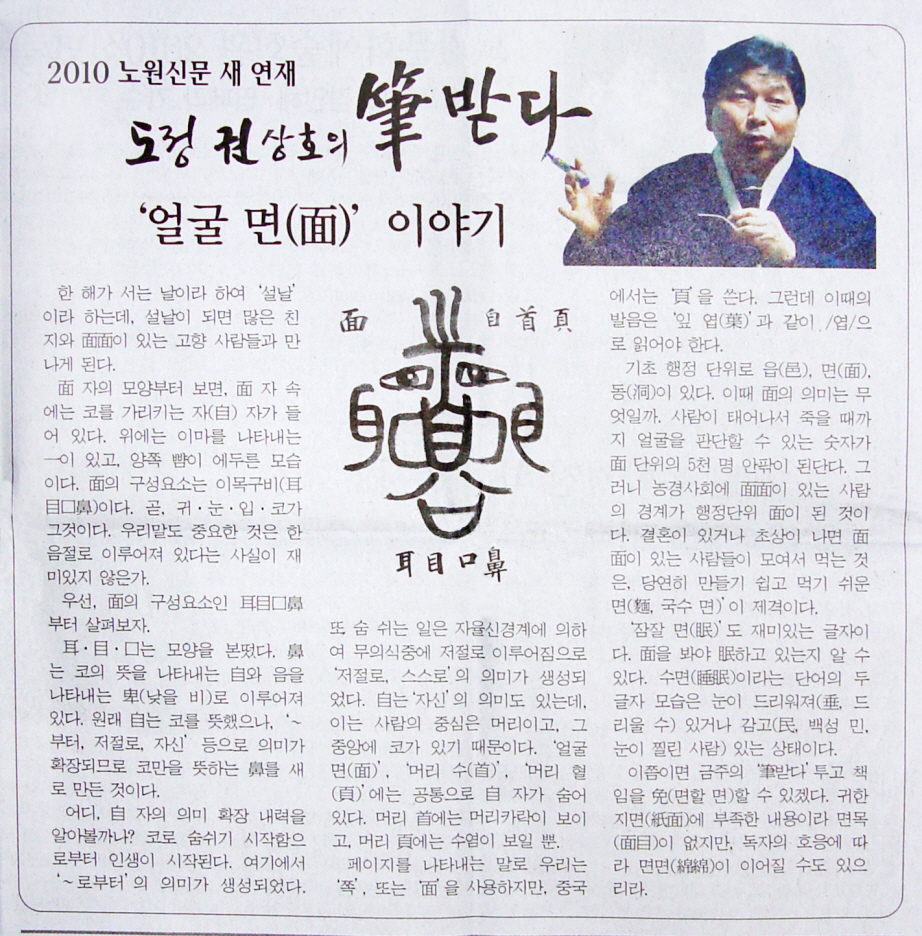 2010 노원신문 새 연재
도정 권상호의 筆 받다
‘얼굴 면(面)’ 이야기
한 해가 서는 날이라 하여 ‘설날’
이라 하는데, 설날이 되면 많은 친
지와 面面이 있는 고향 사람들과 만
나게 된다.
面 자의 모양부터 보면, 面 자 속
에는 코를 가리키는 자(自) 자가 들
어 있다. 위에는 이마를 나타내는
一이 있고, 양쪽 뺨이 에두른 모습
이다. 面의 구성요소는 이목구비(耳
目口鼻)이다. 곧, 귀·눈·입·코가
그것이다. 우리말도 중요한 것은 한
음절로 이루어져 있다는 사실이 재
미있지 않은가.
우선, 面의 구성요소인 耳目口鼻
부터 살펴보자.
耳·目·口는 모양을 본떴다. 鼻
는 코의 뜻을 나타내는 自와 음을
나타내는 卑(낮을 비)로 이루어져
있다. 원래 自는 코를 뜻했으나, ‘~
부터, 저절로, 자신’ 등으로 의미가
확장되므로 코만을 뜻하는 鼻를 새
로 만든 것이다.
어디, 自 자의 의미 확장 내력을
알아볼까나? 코로 숨쉬기 시작함으
로부터 인생이 시작된다. 여기에서
‘~로부터’의 의미가 생성되었다.
面 自首頁
耳目口鼻
또 숨 쉬는 일은 자율신경계에 의하
여 무의식중에 저절로 이루어짐으로
‘저절로, 스스로’의 의미가 생성되
었다. 自는 ‘자신’의 의미도 있는데,
이는 사람의 중심은 머리이고, 그
중앙에 코가 있기 때문이다. ‘얼굴
면(面)’, ‘머리 수(首)’, ‘머리 혈
(頁)’에는 공통으로 自 자가 숨어
있다. 머리 首에는 머리카락이 보이
고, 머리 頁에는 수염이 보일 뿐.
페이지를 나타내는 말로 우리는
‘쪽’, 또는 ‘面’을 사용하지만, 중국
에서는 ‘頁’을 쓴다. 그런데 이때의
발음은 ‘잎 엽(葉)’과 같이 /엽/으
로 읽어야 한다.
기초 행정 단위로 읍(邑), 면(面),
동(洞)이 있다. 이때 面의 의미는 무
엇일까. 사람이 태어나서 죽을 때까
지 얼굴을 판단할 수 있는 숫자가
面 단위의 5천 명 안팎이 된단다. 그
러니 농경사회에 面面이 있는 사람
의 경계가 행정단위 面이 된 것이
다. 결혼이 있거나 초상이 나면 面
面이 있는 사람들이 모여서 먹는 것
은, 당연히 만들기 쉽고 먹기 쉬운
면(麵, 국수 면)’이 제격이다.
‘잠잘 면(眠)’도 재미있는 글자이
다. 面을 봐야 眠하고 있는지 알 수
있다. 수면(睡眠)이라는 단어의 두
글자 모습은 눈이 드리워져(垂, 드
리울 수) 있거나 감고(民, 백성 민,
눈이 찔린 사람) 있는 상태이다.
이쯤이면 금주의 ‘筆받다’ 투고 책
임을 免(면할 면)할 수 있겠다. 귀한
지면(紙面)에 부족한 내용이라 면목
(面目)이 없지만, 독자의 호응에 따
라 면면(綿綿)이 이어질 수도 있으
리라.